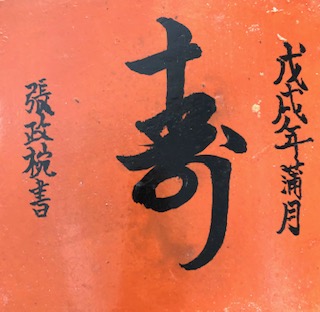 戊戌年蒲月
壽
張政椀書